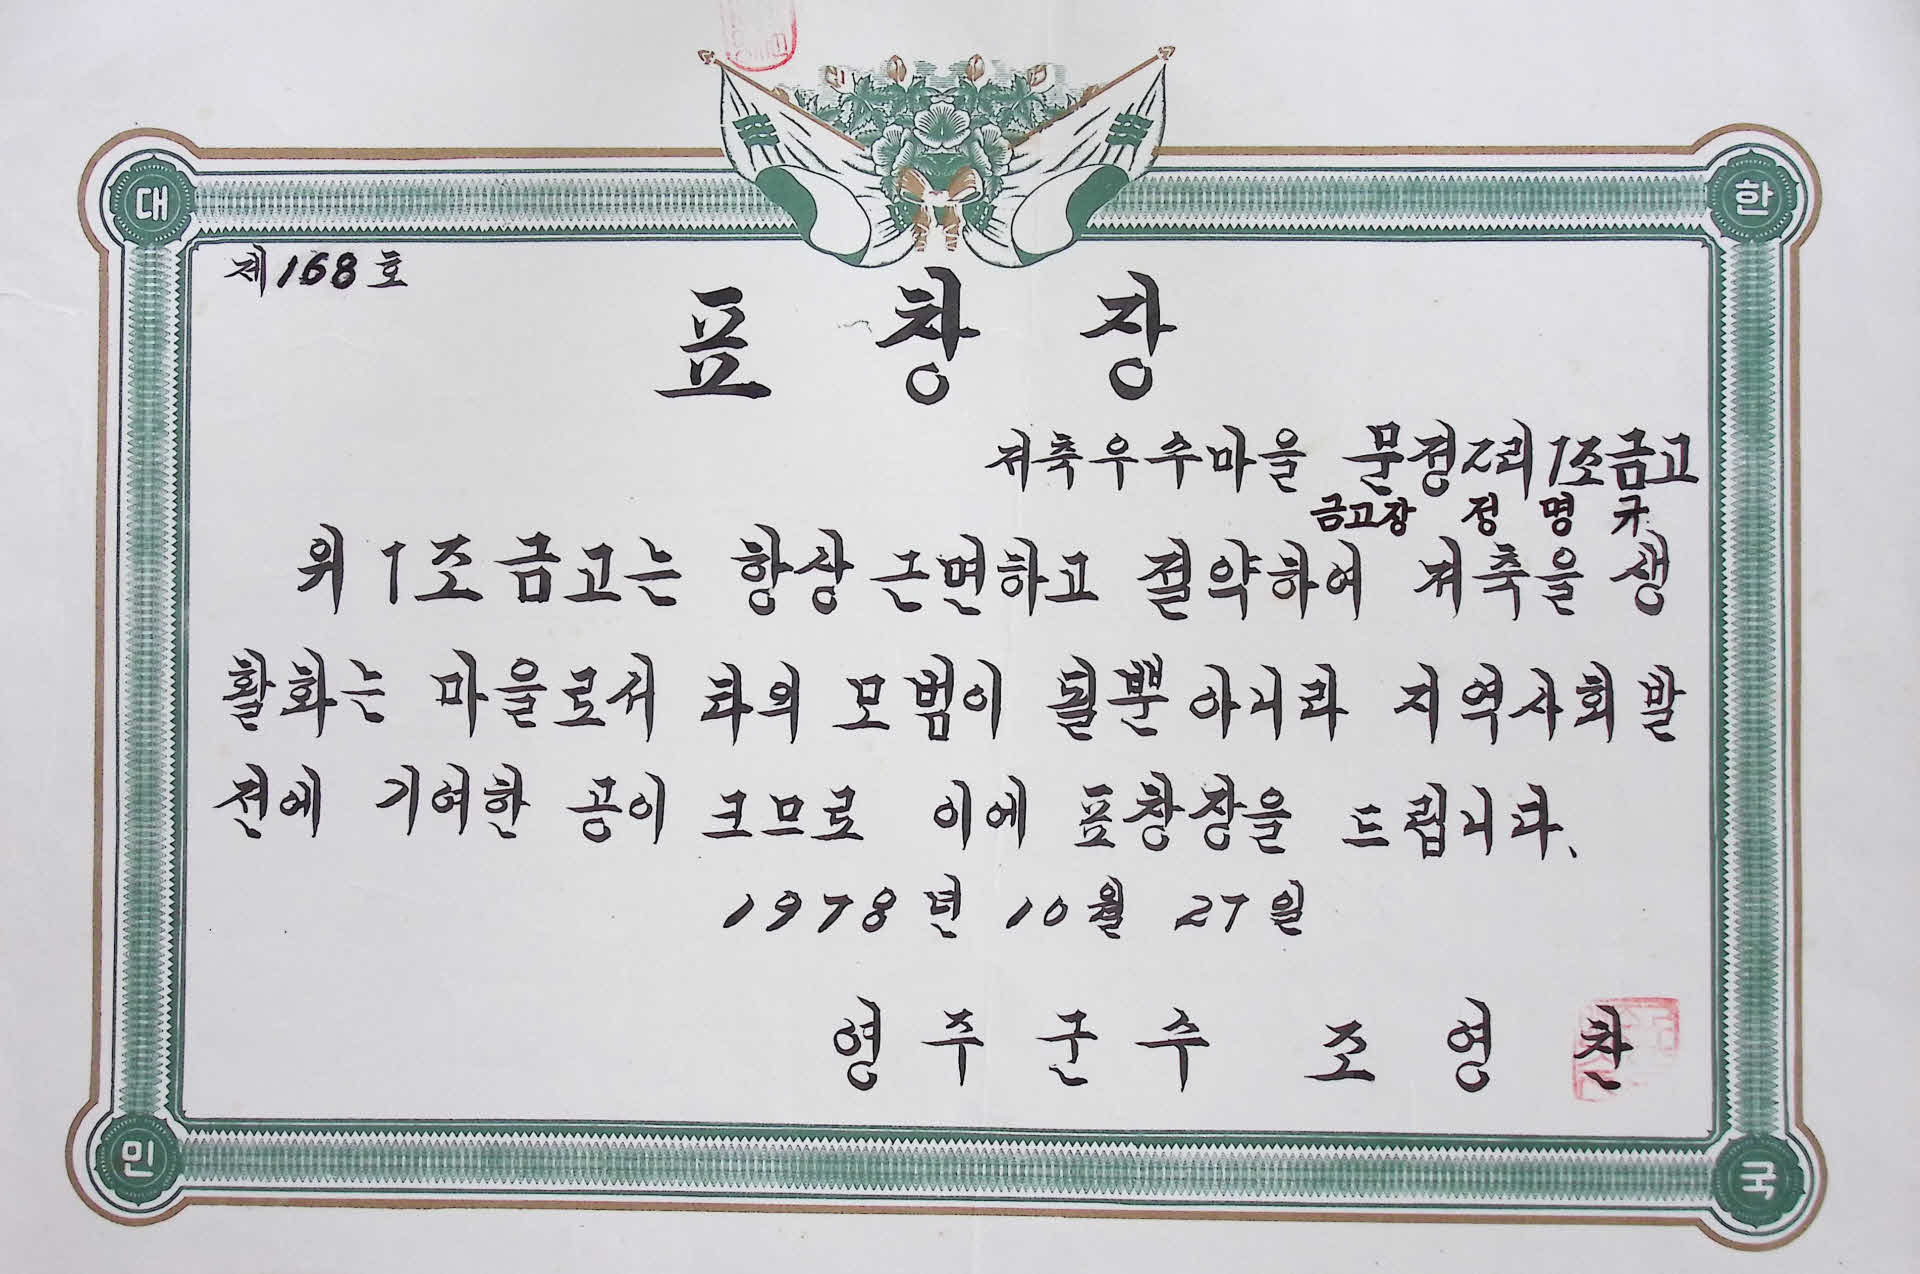 대 한
제168호
표창장
저축우수마을 문정2리1조금고
금고장 정명규
위 1조금고는 항상 근면하고 절약하여 저축을 생
활화는 마을로서 타의 모범이 될뿐 아니라 지역사회 발
전에 기여한 공이 크므로 이에 표창장을 드립니다.
1978년 10월 27일
영주군수 조영찬
민 국